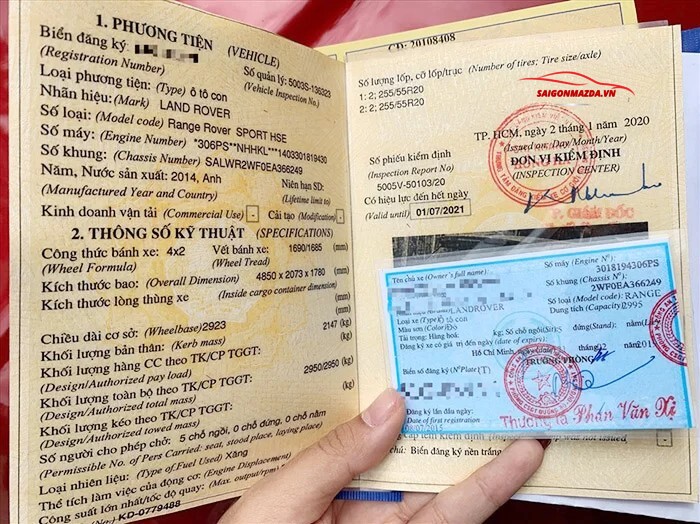 1. PHƯƠNG TIỆN (VEHICLE)
Biển đăng ký:
(Registration Number)
Số quản lý: 5003S-136323
(Vehicle Inspection No.)
Loại phương tiện: (Type) ô tô con
Nhãn hiệu: (Mark) LAND ROVER
Số loại: (Model code) Range Rover SPORT HSE
Số máy: (Engine Number) *306PS**NHHKL***1403301819430
Số khung: (Chassis Number) SALWR2WF0EA366249
Năm, Nước sản xuất: 2014, Anh
(Manufactured Year and Country)
Niên hạn SD:
(Lifetime limit to)
Kinh doanh vận tải (Commercial Use) - Cải tạo (Modification) -
2. THÔNG SỐ KỸ THUẬT (SPECIFICATIONS)
Công thức bánh xe: 4x2 Vết bánh xe: 1690/1685 (mm)
(Wheel Formula) (Wheel Tread)
Kích thước bao: (Overall Dimension) 4850 x 2073 x 1780 (mm)
Kích thước lòng thùng xe (mm)
(Inside cargo container dimension)
Chiều dài cơ sở: (Wheelbase) 2923 (mm)
Khối lượng bản thân: (Kerb mass) 2147 (kg)
Khối lượng hàng CC theo TK/CP TGGT:
(Design/Authorized pay load)
Khối lượng toàn bộ theo TK/CP TGGT: 2950/2950 (kg)
(Design/Authorized total mass)
Khối lượng kéo theo TK/CP TGGT: (kg)
(Design/Authorized towed mass)
Số người cho phép chở: 5 chỗ ngồi, 0 chỗ đứng, 0 chỗ nằm
(Permissible No. of Pers Carried: seat, stood place, laying place)
Loại nhiên liệu: (Type of Fuel Used) Xăng
Thể tích làm việc của động cơ: (Engine Displacement)
Công suất lớn nhất/tốc độ quay: (Max. output/rpm)
No) KD-0779488
CD: 20108408
Số lượng lốp, cỡ lốp/trục (Number of tires; Tire size/axle)
1: 2; 255/55R20
2: 2; 255/55R20
SAIGONMAZDA.VN
TP. HCM, ngày 2 tháng 1 năm 2020
(Issued on: Day/Month/Year)
Số phiếu kiểm định
(Inspection Report No)
5005V-50103/20
ĐƠN VỊ KIỂM ĐỊNH
(INSPECTION CENTER)
Có hiệu lực đến hết ngày
(Valid until) 01/07/2021
P. GIÁM ĐỐC
Tên chủ xe (Owner's full name):
Số máy (Engine Nº):
3018194306PS
Số khung (Chassis Nº):
2WF0EA366249
LANDROVER
Số loại (Model code): RANGE
Loại xe (Type) ô tô con
Dung tích (Capacity): 2995
Màu sơn (Color) Đỏ
Tải trọng: Hàng hoá: kg; Số chỗ ngồi (Sit): đứng (Stand):
Đăng ký xe có giá trị đến ngày (date of expiry):
Hồ Chí Minh,
TRƯỞNG PHÒNG
Biển số đăng ký (NºPlate)(T)
Đăng ký lần đầu ngày:
Date of first registration
/07/2015
Thượng tá Phan Văn Xi
was not issued)
chú: Biển đăng ký nền trắng